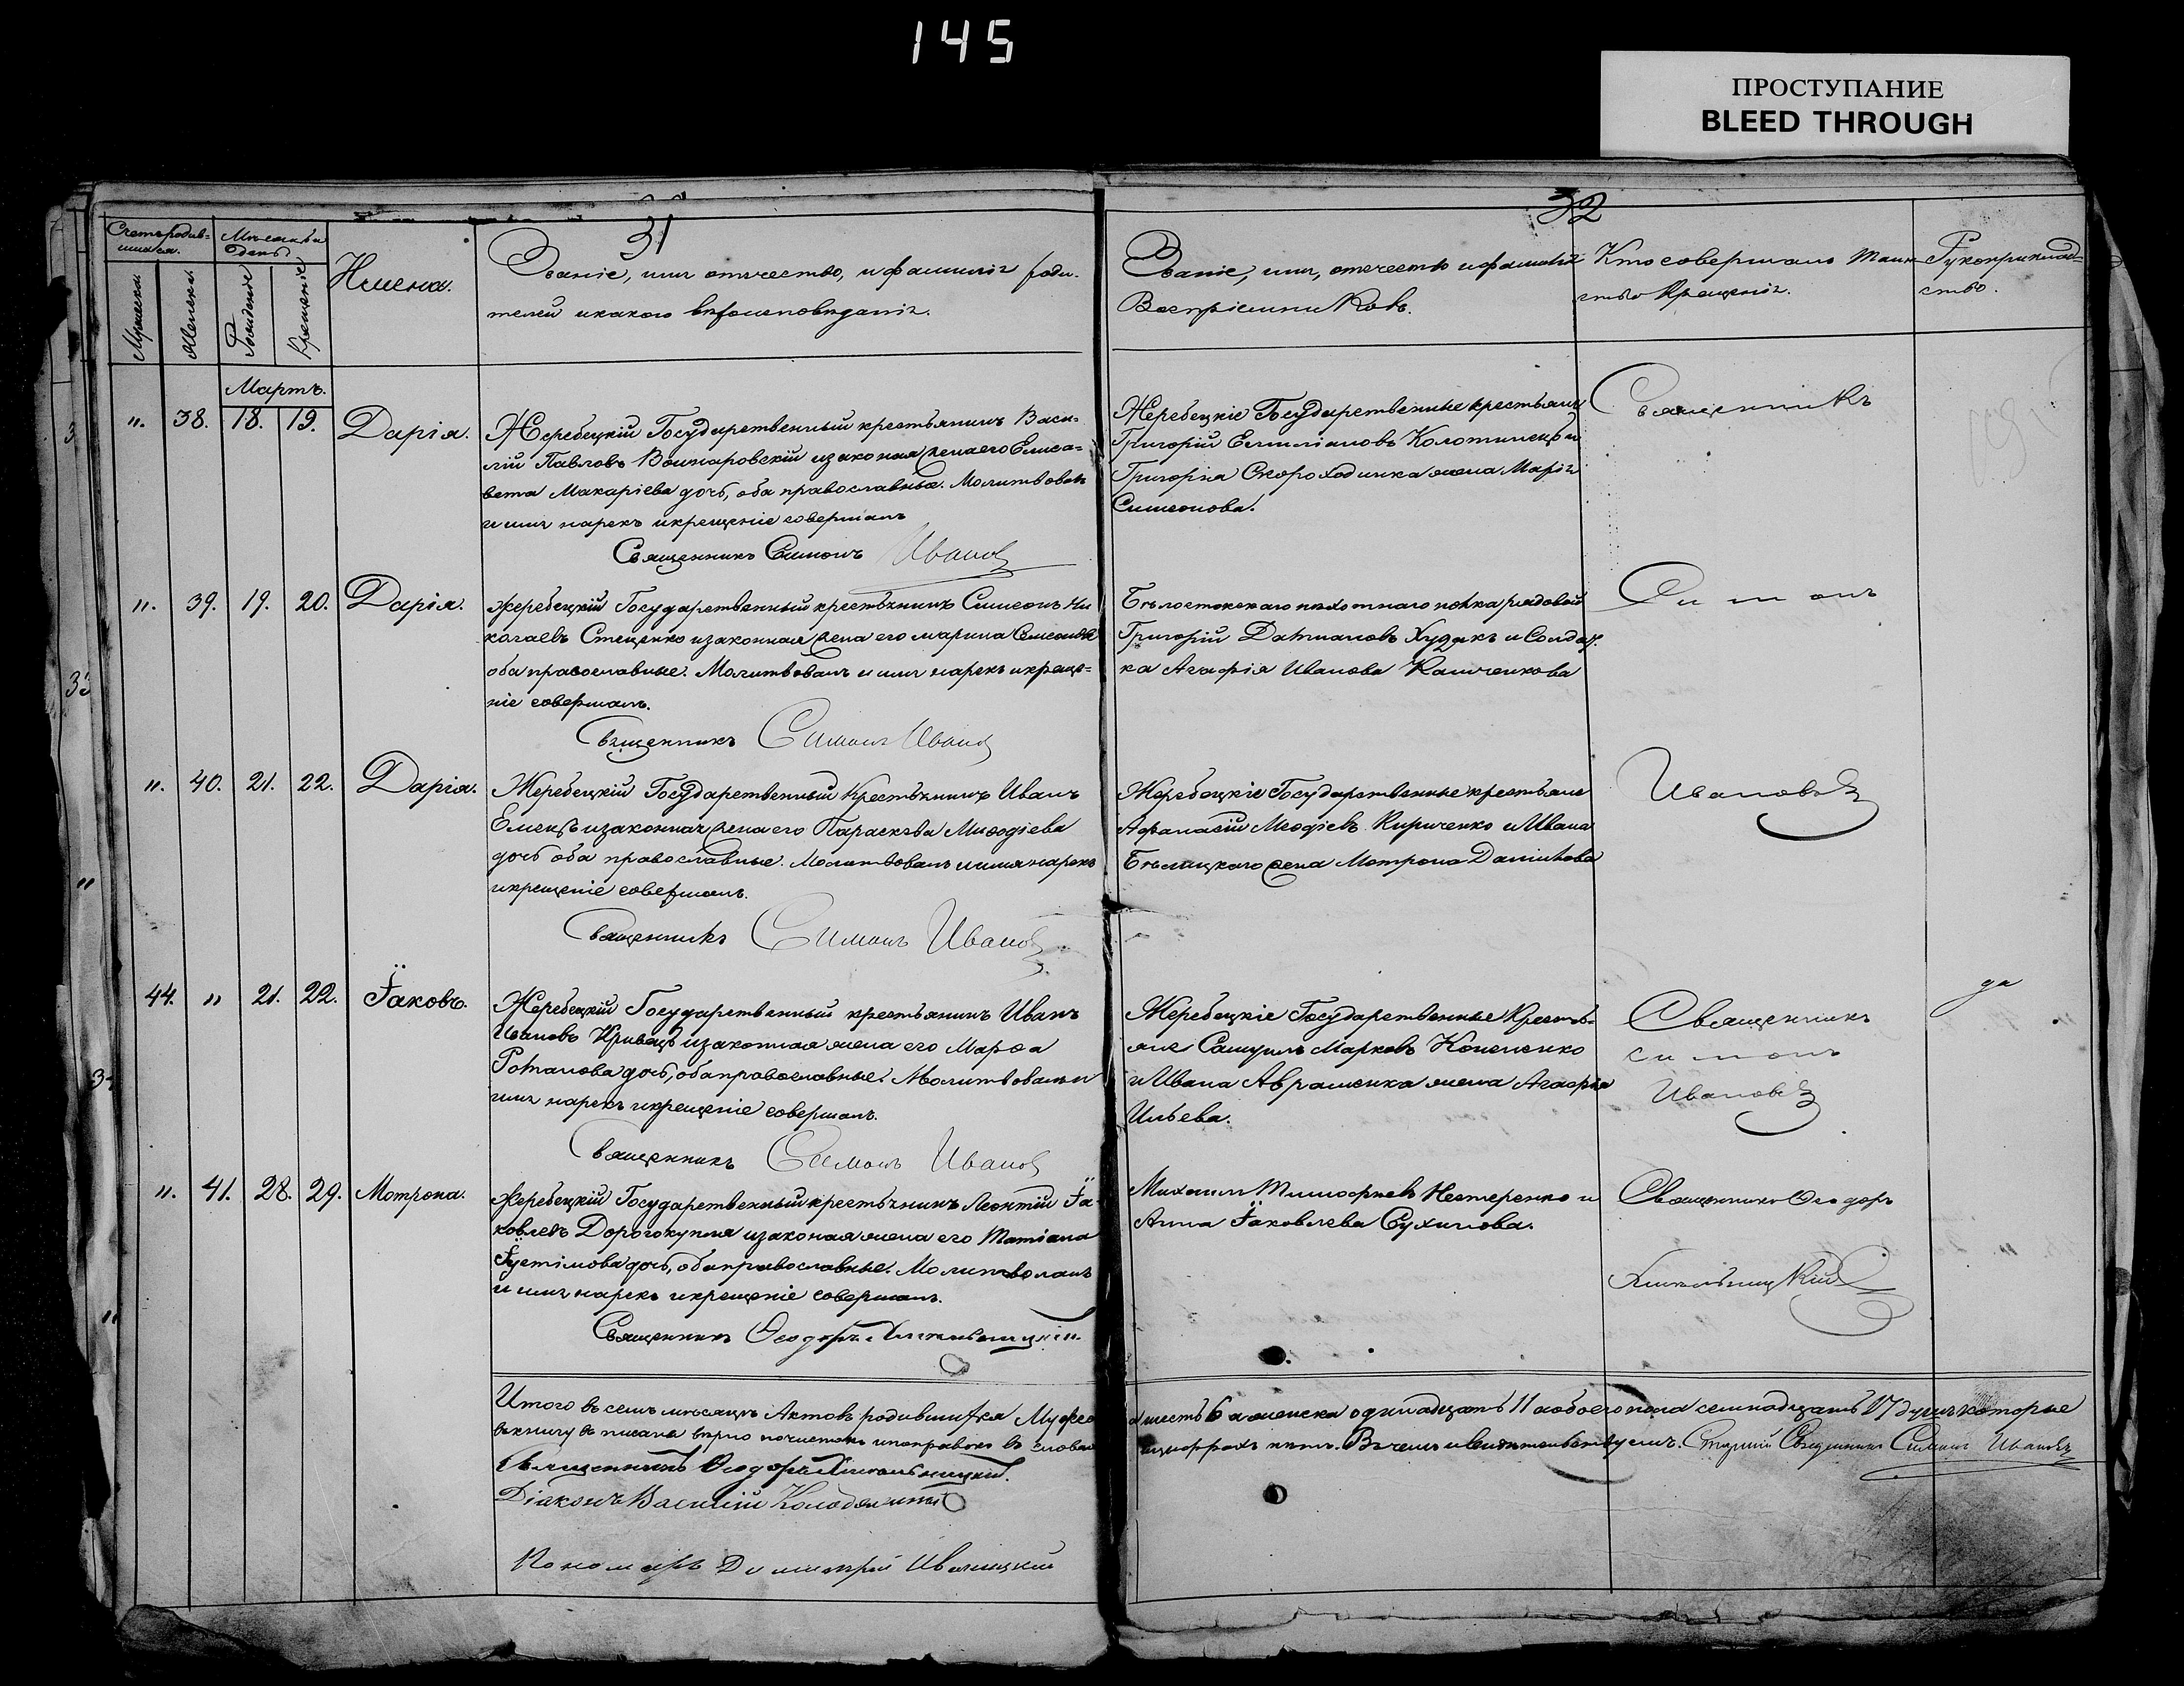 145
ПРОСТУПАНИЕ
BLEED THROUGH
31
32
Счетъ родив-
шихся.
Мѣсяцъ и
день
Мужески.
Женски.
Рожденіе
Крещеніе
Имена.
Званіе, имя отчество, и фамилія роди-
телей и какого вѣроисповѣданія.
Званіе, имя, отечество и фамилія
Воспріемниковъ.
Кто совершалъ Таин-
ство Крещенія.
Рукоприклад-
ство.
Мартъ.
". 38. 18. 19. Дарія.
Жеребецкій Государственный крестьянинъ Васи-
лій Павловъ Воинаровскій и законая жена его Елиса-
вета Макаріева дочь, оба православные. Молитвовалъ
и имя нарекъ и крещеніе совершалъ
Священникъ Симонъ Иванов
Жеребецкіе Государственные крестьяне
Григорій Емиліановъ Коломиецъ и
Григорія Скороходинка жена Марія
Симеонова.
Священникъ
". 39. 19. 20. Дарія.
Жеребецкій Государственный крестьянинъ Симеонъ Ни
колаевъ Стеценко и законная жена его Марина Симеонова
оба православные. Молитвовалъ и имя нарекъ и креще-
ніе совершалъ.
Священникъ Симонъ Иванов
Бѣлостокскаго пѣхотнаго полка рядовой
Григорій Худякъ и Солдат
ка Агафія Иванова
Симонъ
". 40. 21. 22. Дарія.
Жеребецкій Государственный Крестьянинъ Иванъ
Емецъ и законная жена его Параскева Мефодіева
дочь оба православные. Молитвовалъ и имя нарекъ
и крещеніе совершалъ.
Священникъ Симонъ Иванов
Жеребецкіе Государственные крестьяне
Афанасій Меѳодіевъ Кириченко и Ивана
Бѣлицкаго жена Мотрона Данилова
Ивановъ
44. " 21. 22. Їаковъ.
Жеребецкій Государственный крестьянинъ Иванъ
Ивановъ Кривецъ и законная жена его Марѳа
Романова дочь, оба православные. Молитвовалъ и
имя нарекъ и крещеніе совершалъ.
Священникъ Симонъ Иванов
Жеребецкіе Государственные Кресть-
яне Самуилъ Марковъ Коненко
и Ивана Авраменка жена Агафія
Ильева.
Священникъ
Симонъ
Ивановъ
да
". 41. 28. 29. Мотрона.
Жеребецкій Государственный крестьянинъ Леонтій Їа-
ковлевъ Дорогокупля и законая жена его Татіана
Їустімова дочь, оба православные. Молитвовалъ
и имя нарекъ и крещеніе совершалъ.
Священникъ Ѳеодоръ Хмельницкій.
Михаилъ Тимофіевъ Нестеренко и
Анна Їаковлева Сухинова.
Священникъ Ѳеодоръ
Хмельницкій
Итого въ семъ мѣсяцѣ Актовъ родившихся Мужес
ка шесть 6 а женска одинадцать 11 а обоего пола семнадцать 17 душъ которые
въ книгу вписана вѣрно почистокъ и поправокъ въ словахъ
и цыфрахъ нѣтъ. Въ чемъ и свидѣтельствуемъ. Старшій Священникъ Симонъ Ивановъ
Священникъ Ѳеодоръ Хмельницкій.
Діаконъ Василій
Пономарь Димитрій Иваницкій